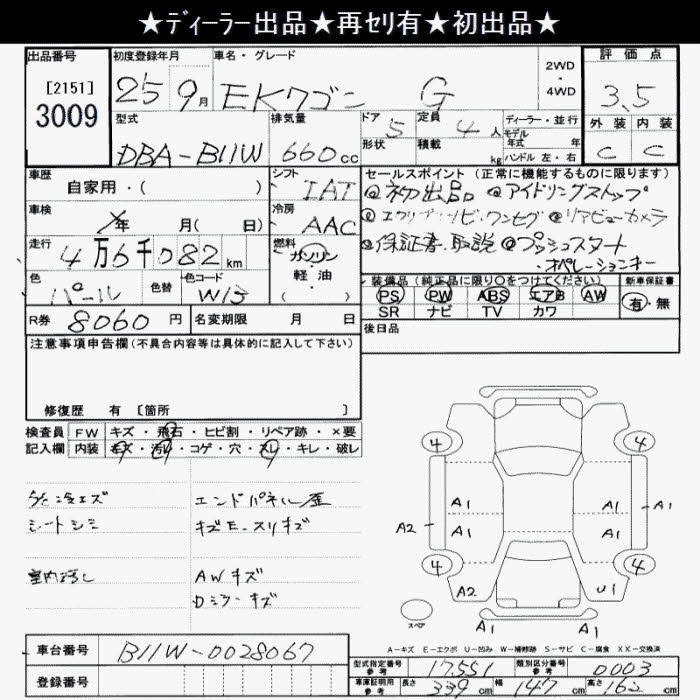 ★ディーラー出品★再セリ有★初出品★
出品番号 初度登録年月 車名・グレード 2WD・4WD 評価点
[2151]
3009
25 9月 EKワゴン G 3.5
型式 排気量 ドア 5 定員 4人 ディーラー・並行 外装 内装
形状 積載 kg モデル年式 年式 ハンドル 左・右
DBA-B11W 660cc C C
車歴 シフト セールスポイント (正常に機能するものに限ります)
自家用・( ) IAT @初出品 @アイドリングストップ
車検 年 月( 日) 冷房 AAC @リアビューカメラ
走行 4万6千082km 燃料 ガソリン @保証書、取説 @プッシュスタート
軽・油 ・オペレーションキー
色 パール 色替 色コード W13 ( )
装備品 (純正品に限り○をつけてください) 新車保証書
PS PW ABS エアB AW 有・無
SR ナビ TV カワ
R券 8060円 名変期限 月 日 後日品
注意事項申告欄(不具合内容等は具体的に記入して下さい)
修復歴 有 [箇所 ]
検査員 FW キズ・飛石・ヒビ割・リペア跡・×要
記入欄 内装 キズ・汚れ・コゲ・穴・スレ・キレ・破レ
エンドパネル歪
シートシミ キズE、スリキズ
室内汚し AWキズ
Dミラーキズ
4 4
A1 A1 A1
A2 A1 A1
4 4
A2 U1
スペア A1 A1
A-キズ E-エクボ U-凹み W-補修跡 S-サビ C-腐食 XX-交換済
車台番号 B11W-0028067
型式指定番号 参考 17551 類別区分番号 参考 0003
登録番号
車庫証明用 参考 長さ 339cm 幅 147cm 高さ 162cm